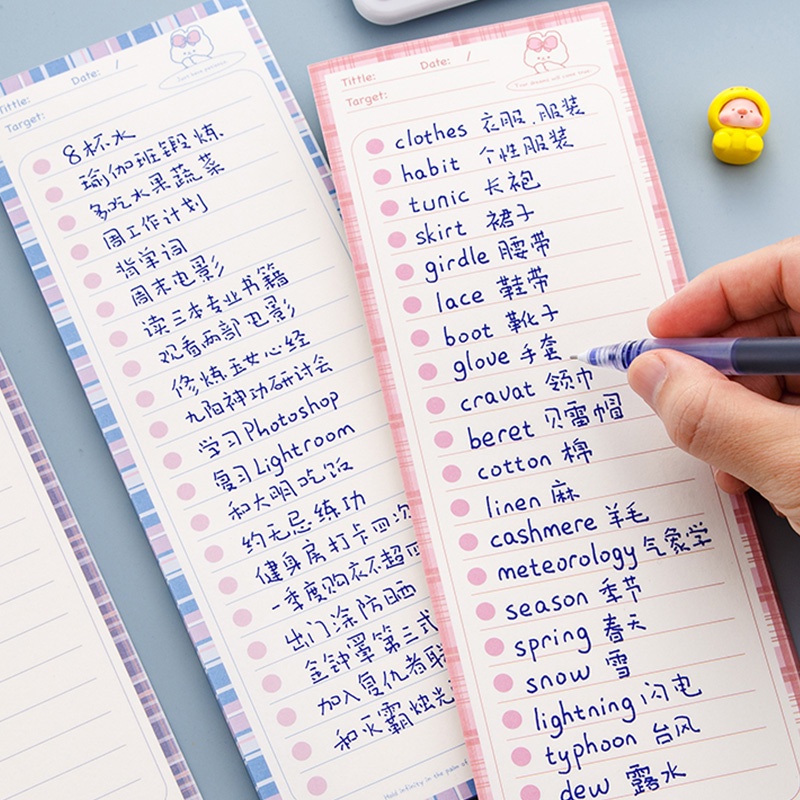 Tittle: Date: /
Just have patience
Target:
8杯水
瑜伽班锻炼
多吃水果蔬菜
周工作计划
背单词
周末电影
读三本专业书籍
观看两部电影
修炼玉女心经
九阳神功研讨会
学习Photoshop
复习Lightroom
和大明吃饭
约无忌练功
健身房打卡四次
一季度购衣不超四
出门涂防晒
金钟罩第三式
加入复仇者联
和灭霸烛光
Hold infinity in the palm of
Tittle: Date: /
Your dreams will come true
Target:
clothes 衣服、服装
habit 个性服装
tunic 长袍
skirt 裙子
girdle 腰带
lace 鞋带
boot 靴子
glove 手套
cravat 领巾
beret 贝雷帽
cotton 棉
linen 麻
cashmere 羊毛
meteorology 气象学
season 季节
spring 春天
snow 雪
lightning 闪电
typhoon 台风
dew 露水